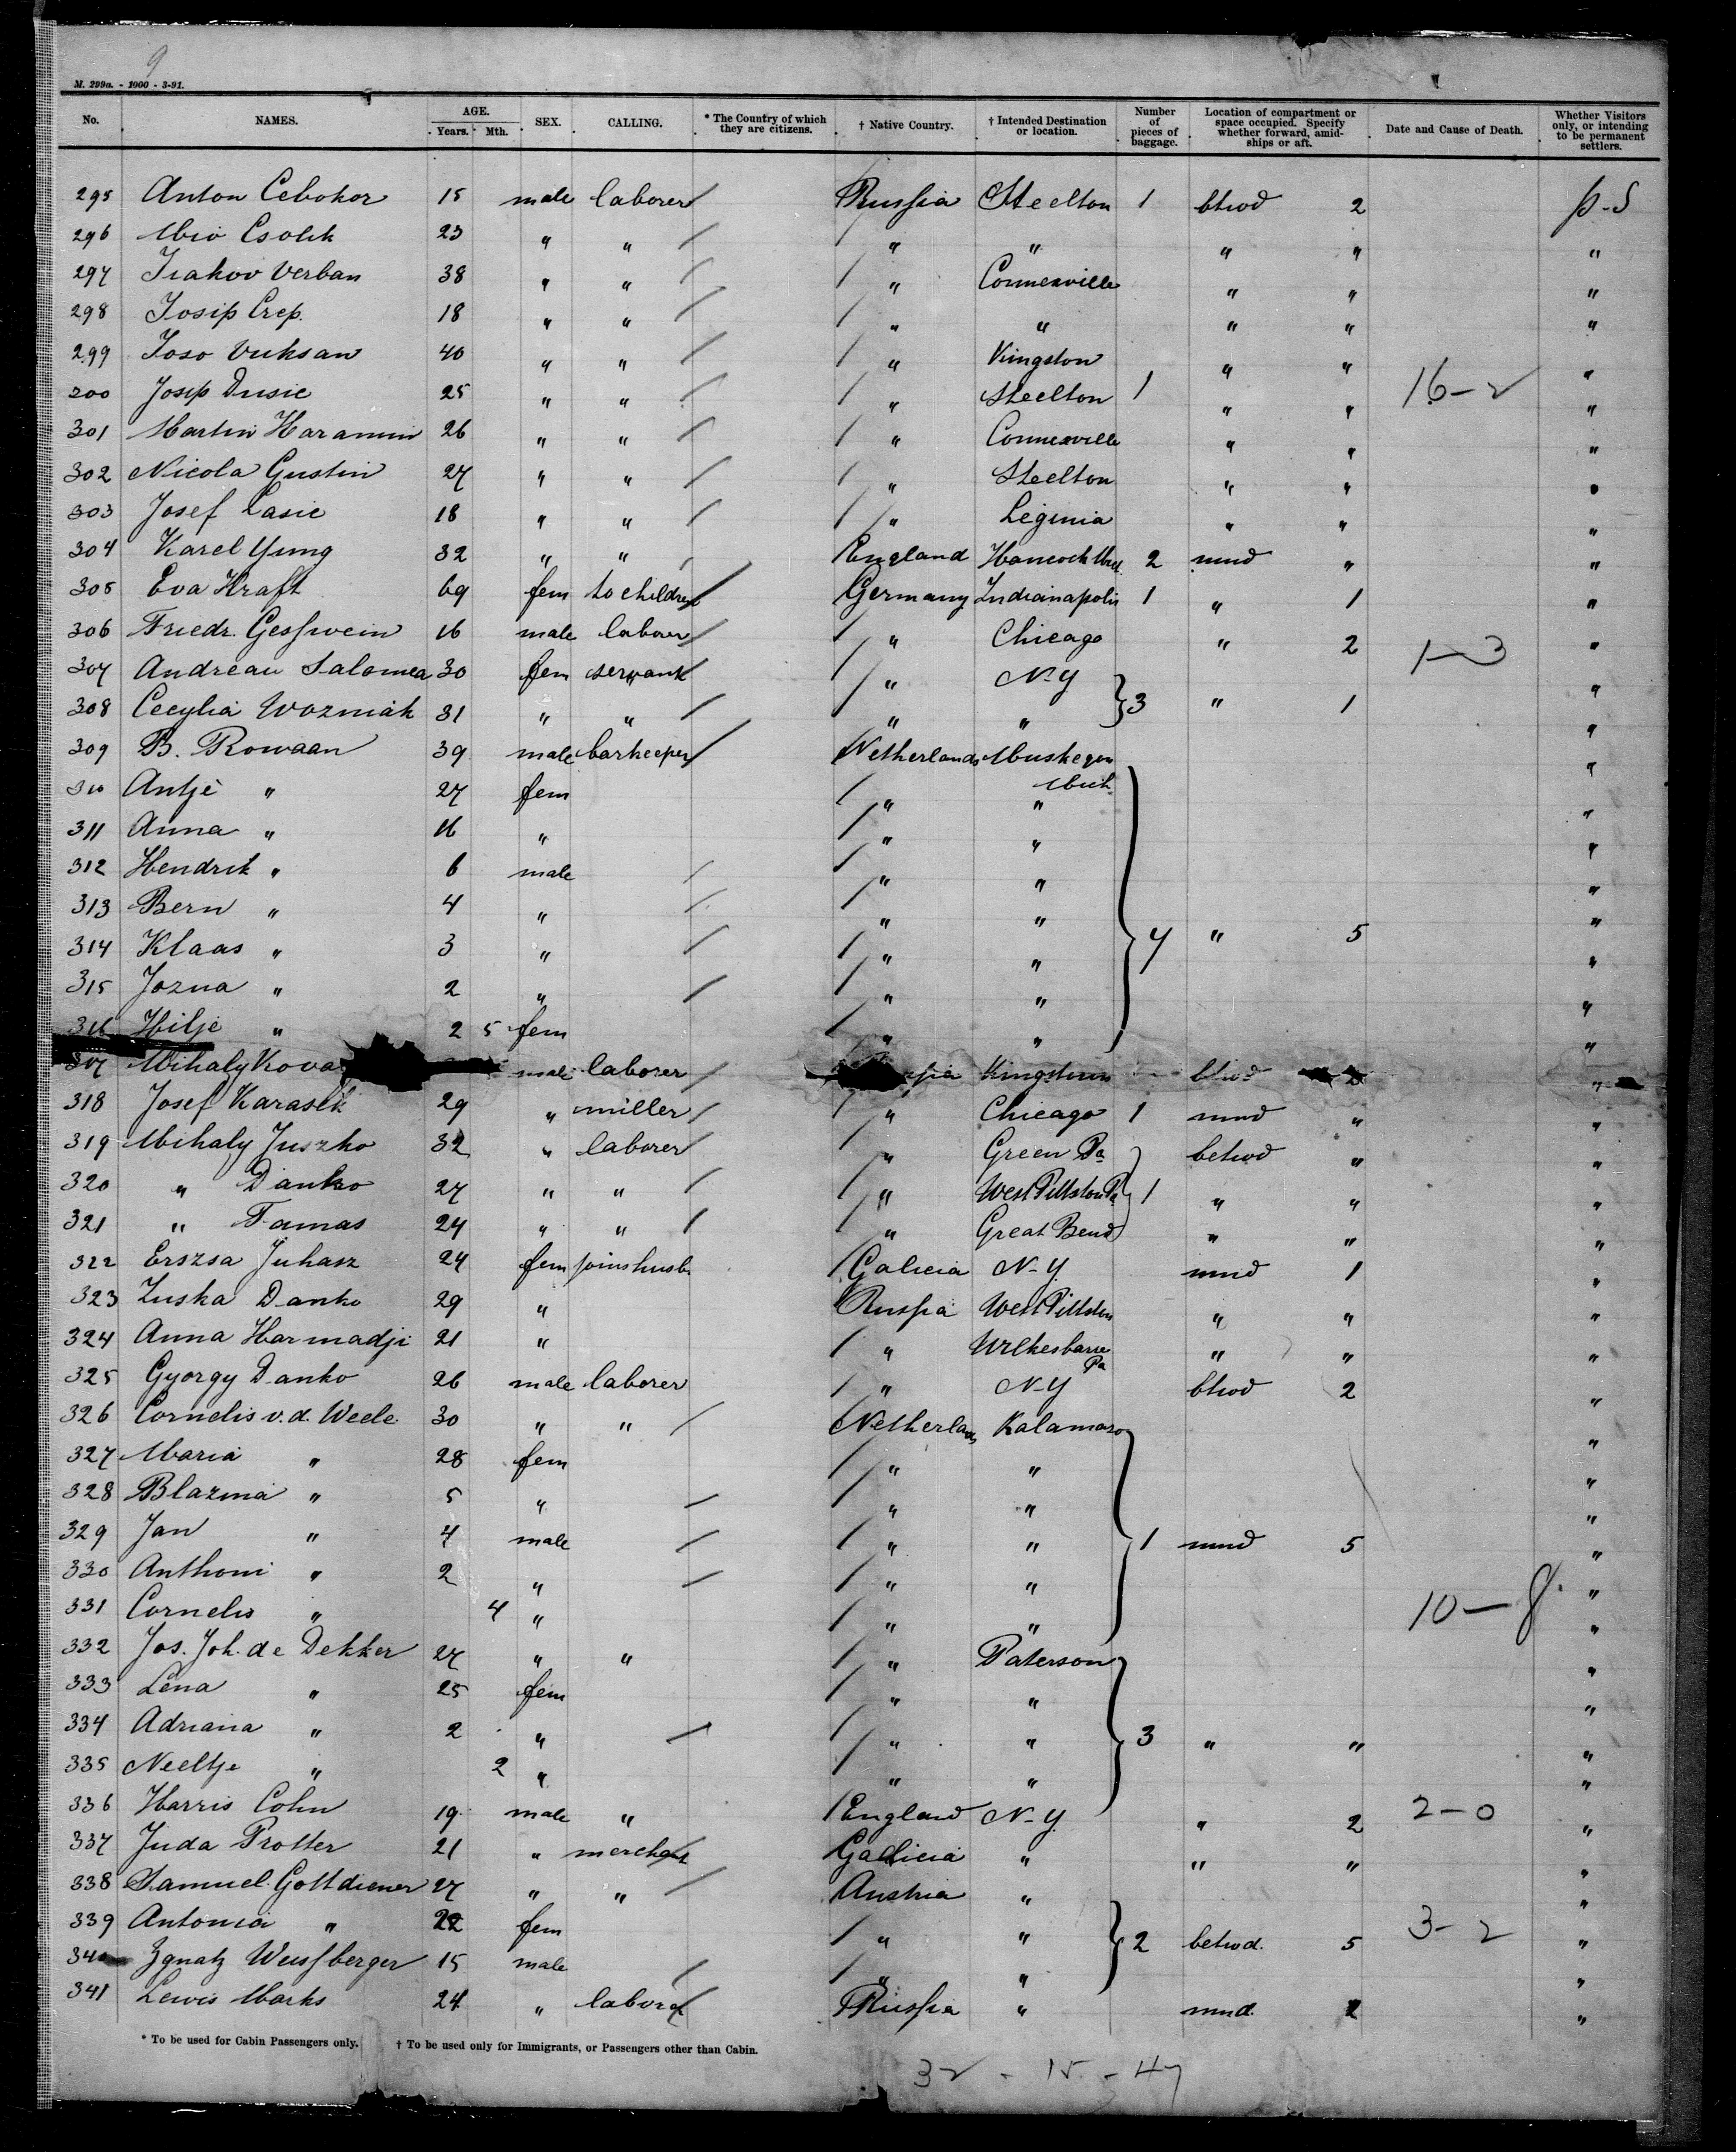 9
M. 299a. - 1000 - 3-91.
No. NAMES. AGE. Years. Mth. SEX. CALLING. * The Country of which they are citizens. † Native Country. † Intended Destination or location. Number of pieces of baggage. Location of compartment or space occupied. Specify whether forward, amidships or aft. Date and Cause of Death. Whether Visitors only, or intending to be permanent settlers.
295 Anton Cebokor 15 male laborer / Russia Steelton 1 btwd 2 p.S
296 Mio Csolik 23 " " / / " " " " "
297 Irakov Verban 38 " " / / " Connexville " " "
298 Josip Crep. 18 " " / / " " " " "
299 Joso Vuksan 40 " " / / " Kingston " " "
300 Josip Dusic 25 " " / / " Steelton 1 " " 16-2 "
301 Martin Haramin 26 " " / / " Connexville " " "
302 Nicola Gustin 27 " " / / " Steelton " " "
303 Josef Casic 18 " " / / " Leginia " " "
304 Karel Yung 32 " " / England Hancock 2 mid " "
305 Eva Kraft 69 fem to children / Germany Indianapolis 1 " 1 "
306 Friedr. Gesswein 16 male laborer / / " Chicago " 2 1-3 "
307 Andreau Salomea 30 fem servant / / " N-Y "
308 Cecylia Wozniak 31 " " / / " " 3 " 1 "
309 B. Rowaan 39 male barkeeper / Netherlands Muskegon Mich. "
310 Antje " 27 fem / " " "
311 Anna " 16 " / " " "
312 Hendrik " 6 male / / " " "
313 Bern " 4 " / / " " "
314 Klaas " 3 " / / " " 4 " 5 "
315 Jozna " 2 " / / " " "
316 Hilje " 2 5 fem / " " "
317 Mihaly Kova male laborer / Kingstown btwd 2 "
318 Josef Karasek 29 " miller / / " Chicago 1 mid " "
319 Mihaly Juszko 32 " laborer / / " Green Pa betwd " "
320 " Danko 27 " " / / " West Pittston Pa 1 " " "
321 " Tamas 24 " " / / " Great Bend " " "
322 Erszsa Juhasz 24 fem joins husb. / Galicia N-Y. mid 1 "
323 Zuska Danko 29 " Russia West Pittston " " "
324 Anna Harmadji 21 " / " Wilkesbarre Pa " " "
325 Gyorgy Danko 26 male laborer / " N-Y btwd 2 "
326 Cornelis v.d. Weele 30 " " / Netherlands Kalamazo "
327 Maria " 28 fem / " " "
328 Blazina " 5 " / / " " "
329 Jan " 4 male / / " " 1 mid 5 "
330 Anthoni " 2 " / / " " "
331 Cornelis " 4 " / " " 10-8 "
332 Jos. Joh. de Dekker 27 " " / " Paterson "
333 Lena " 25 fem / " " "
334 Adriana " 2 " / / " " 3 " " "
335 Neeltje " 2 " / " " "
336 Harris Cohn 19 male " / England N-Y. " 2 2-0 "
337 Juda Protter 21 " merchant Galicia " " " "
338 Samuel Gottdiener 27 " " / Austria " "
339 Antonia " 22 fem / " " 2 betwd. 5 3-2 "
340 Ignatz Weissberger 15 male / / " " "
341 Lewis Marks 24 " laborer / Russia " mid. 2 "
* To be used for Cabin Passengers only. † To be used only for Immigrants, or Passengers other than Cabin.
32 - 15 - 47